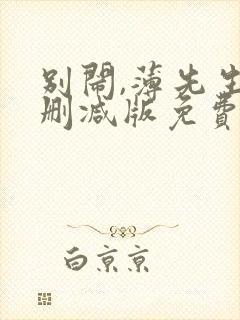 别闹,薄先生
删减版免费
白京京